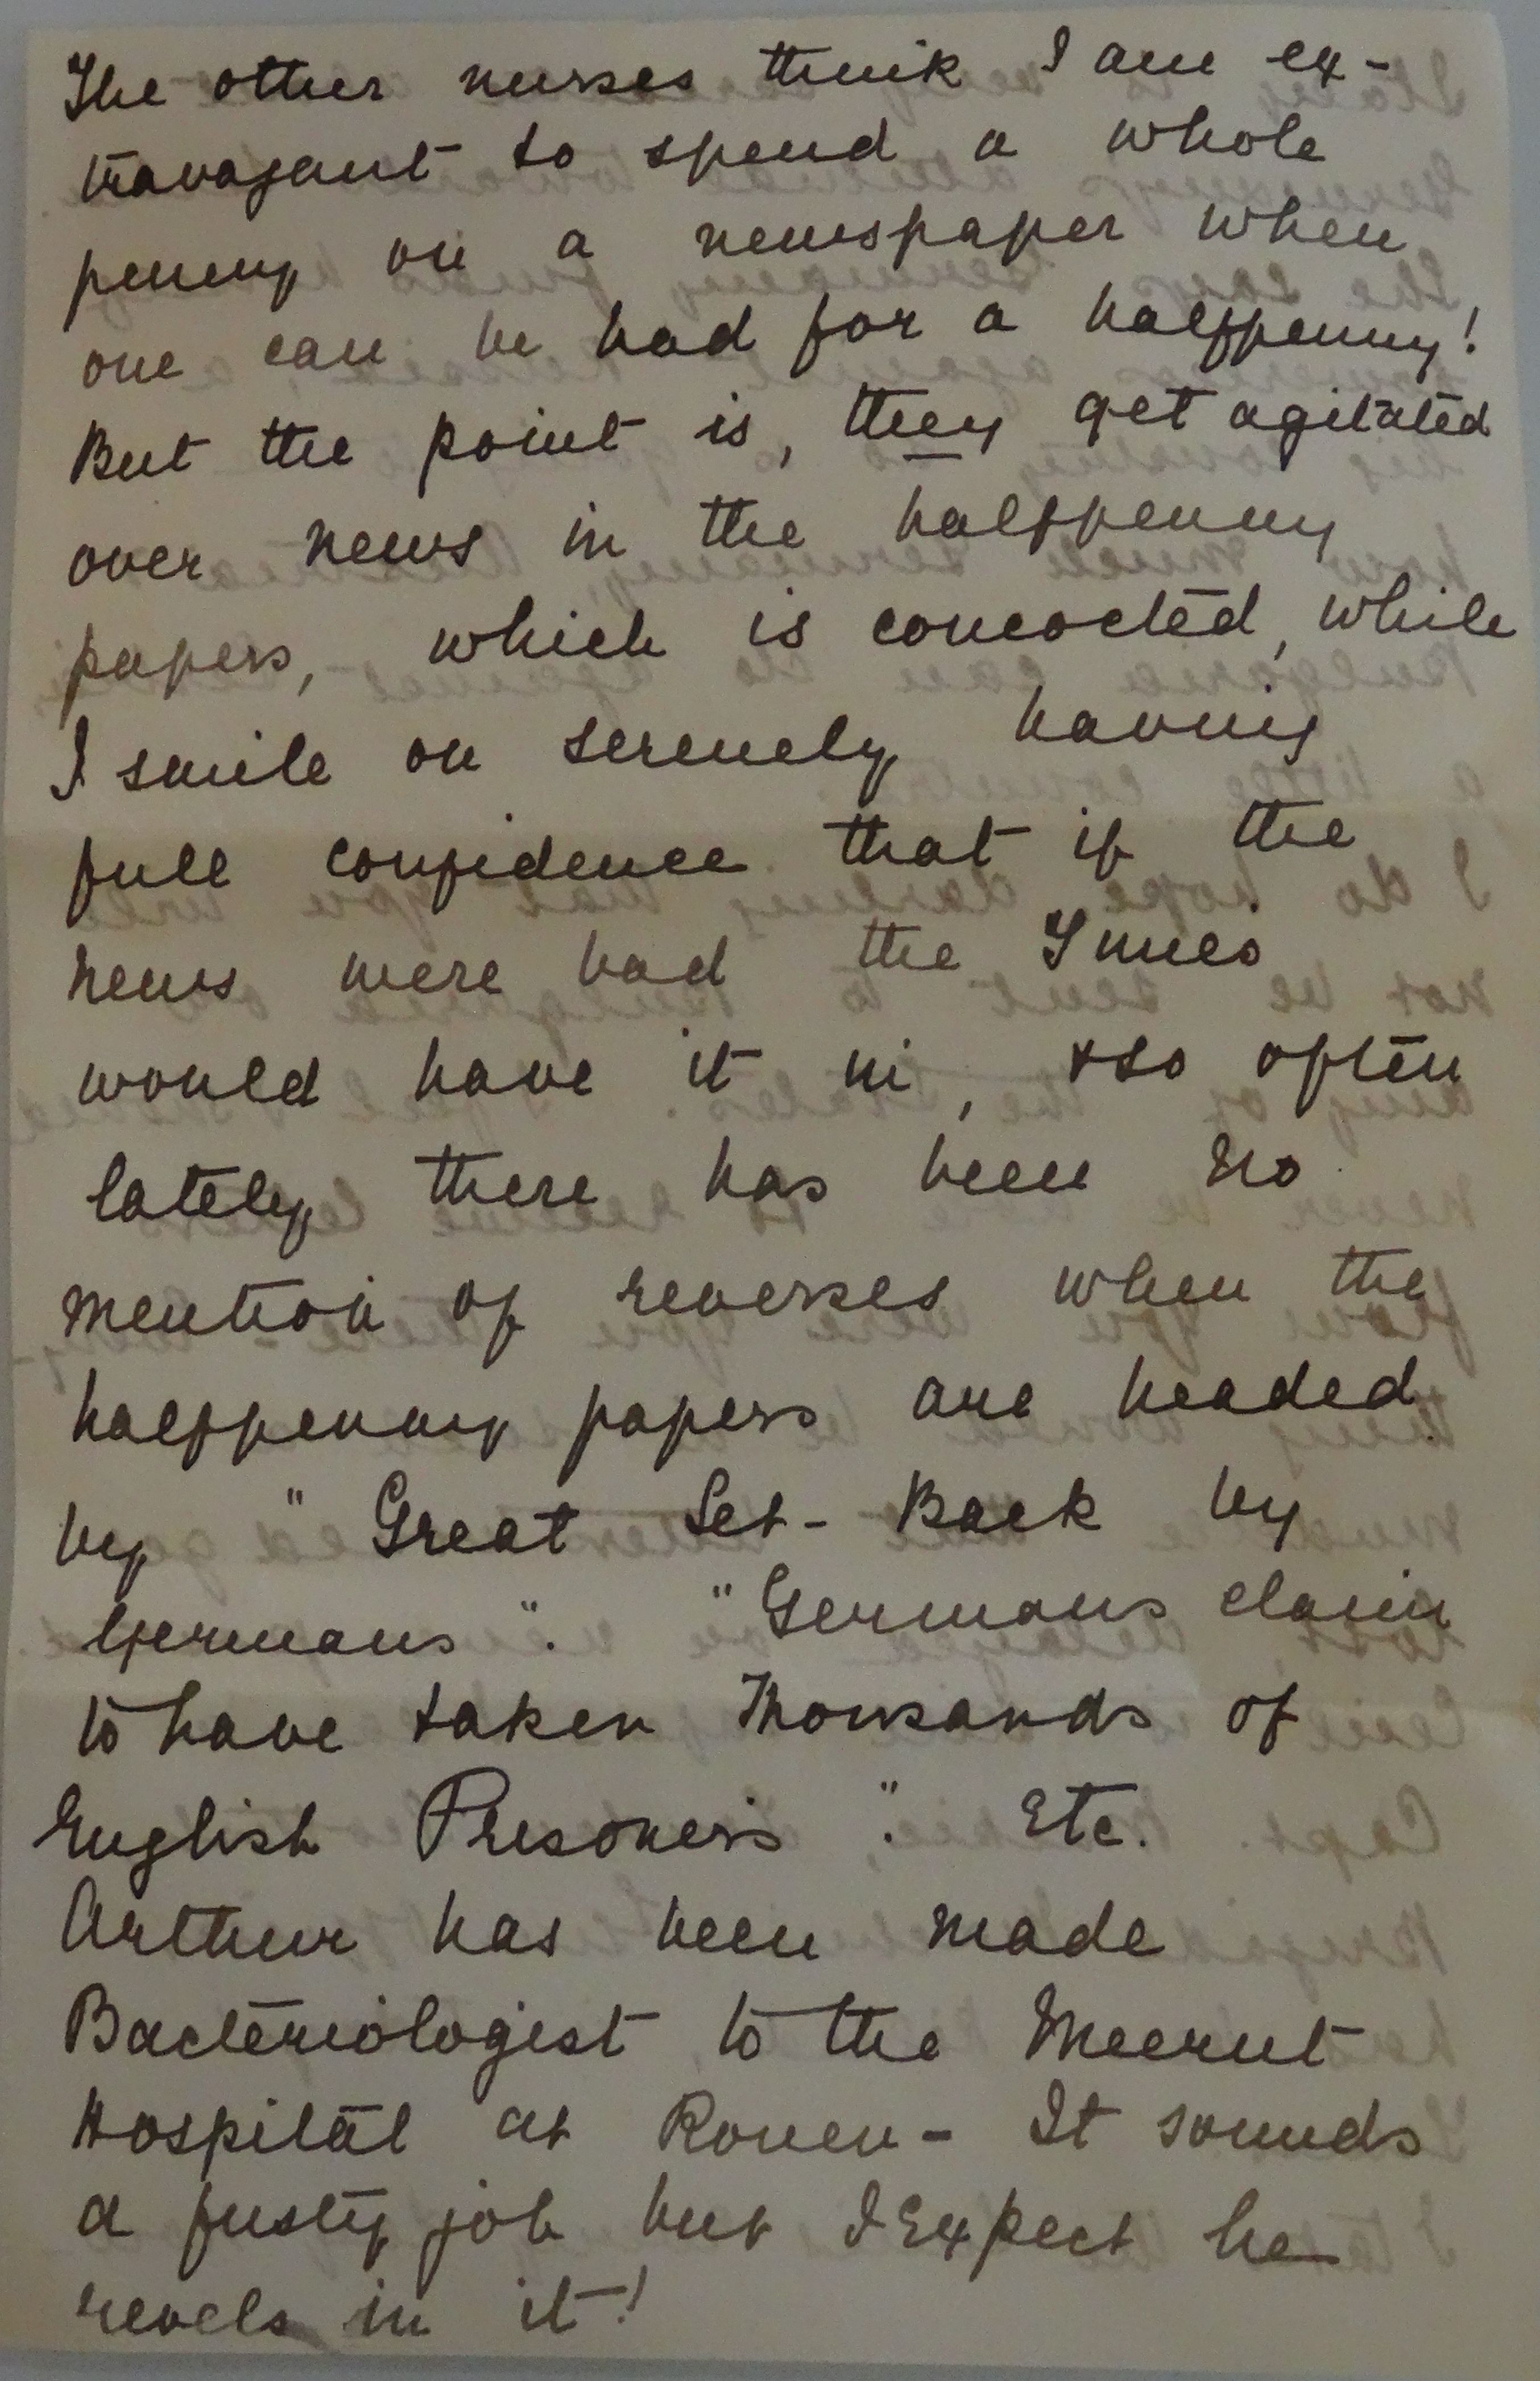 The other nurses think I am ex-
travagant to spend a whole
penny on a newspaper when
one can be had for a halfpenny!
But the point is, they get agitated
over news in the halfpenny
papers, which is concocted, while
I smile on serenely having
full confidence that if the
news were bad the Times
would have it in, & so often
lately there has been no
mention of reverses when the
halfpenny papers are headed
by "Great Set-Back by
Germans". "Germans claim
to have taken Thousands of
English Prisoners". Etc.
Arthur has been made
Bacteriologist to the Meerut
Hospital at Rouen - It sounds
a fusty job but I Expect he
revels in it!